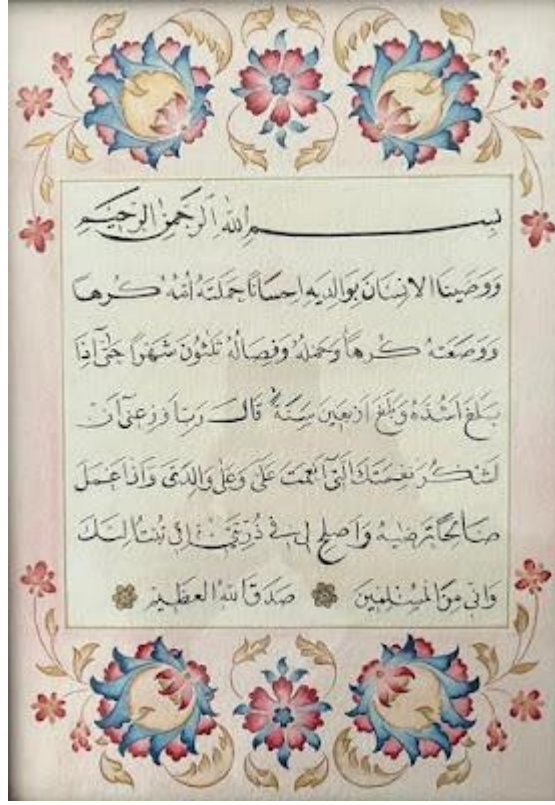 بِسْمِ اللهِ الرَّحْمٰنِ الرَّحِيْمِ
وَوَصَّيْنَا الْاِنْسَانَ بِوَالِدَيْهِ اِحْسَانًا حَمَلَتْهُ اُمُّهُ كُرْهًا
وَوَضَعَتْهُ كُرْهًا وَحَمْلُهُ وَفِصَالُهُ ثَلٰثُونَ شَهْرًا حَتّٰٓى اِذَا
بَلَغَ اَشُدَّهُ وَبَلَغَ اَرْبَعِينَ سَنَةً قَالَ رَبِّ اَوْزِعْنِٓى اَنْ
اَشْكُرَ نِعْمَتَكَ الَّتِٓى اَنْعَمْتَ عَلَىَّ وَعَلٰى وَالِدَىَّ وَاَنْ اَعْمَلَ
صَالِحًا تَرْضٰيهُ وَاَصْلِحْ لِى فِى ذُرِّيَّتِى اِنِّى تُبْتُ اِلَيْكَ
وَاِنِّى مِنَ الْمُسْلِمِينَ صَدَقَ اللهُ الْعَظِيمُ